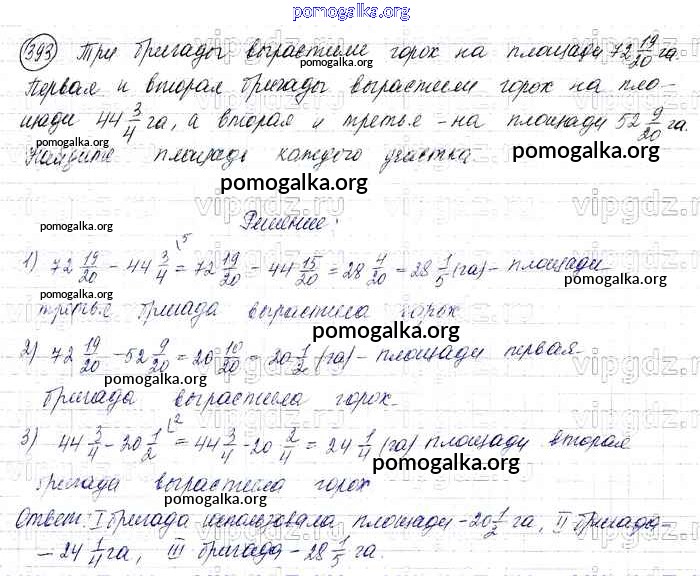 pomogalka.org
393) Три бригады вырастили горох на площади 72 19/20 га.
pomogalka.org
Первая и вторая бригады вырастили горох на пло-
щади 44 3/4 га, а вторая и третья - на площади 52 9/20 га.
pomogalka.org pomogalka.org
Найдите площадь каждого участка
pomogalka.org
Решение:
pomogalka.org
1) 72 19/20 - 44 3/4 \5 = 72 19/20 - 44 15/20 = 28 4/20 = 28 1/5 (га) - площади
pomogalka.org pomogalka.org
третья бригада вырастила горох
pomogalka.org
2) 72 19/20 - 52 9/20 = 20 10/20 = 20 1/2 (га) - площади первая
pomogalka.org
бригада вырастила горох.
3) 44 3/4 - 20 1/2 \2 = 44 3/4 - 20 2/4 = 24 1/4 (га) площади вторая
pomogalka.org
бригада вырастила горох
pomogalka.org pomogalka.org
Ответ: I бригада использовала площади - 20 1/2 га, II бригада
- 24 1/4 га, III бригада - 28 1/5 га.